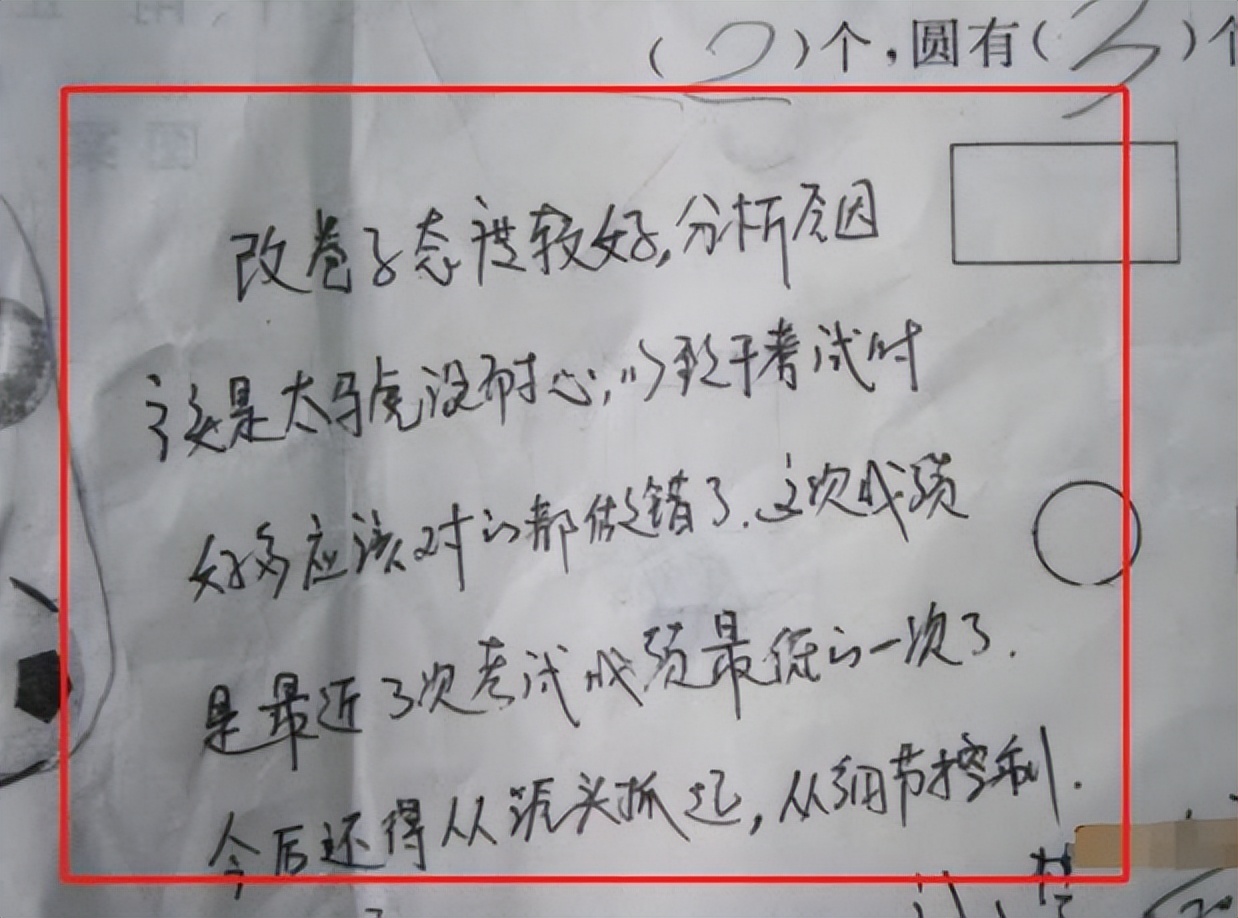 (2)个,圆有(3)个
改卷子态度较好,分析原因
还是太马虎没耐心,以致于考试时
好多应该对的都做错了.这次成绩
是最近几次考试成绩最低的一次了.
今后还得从源头抓起,从细节控制.